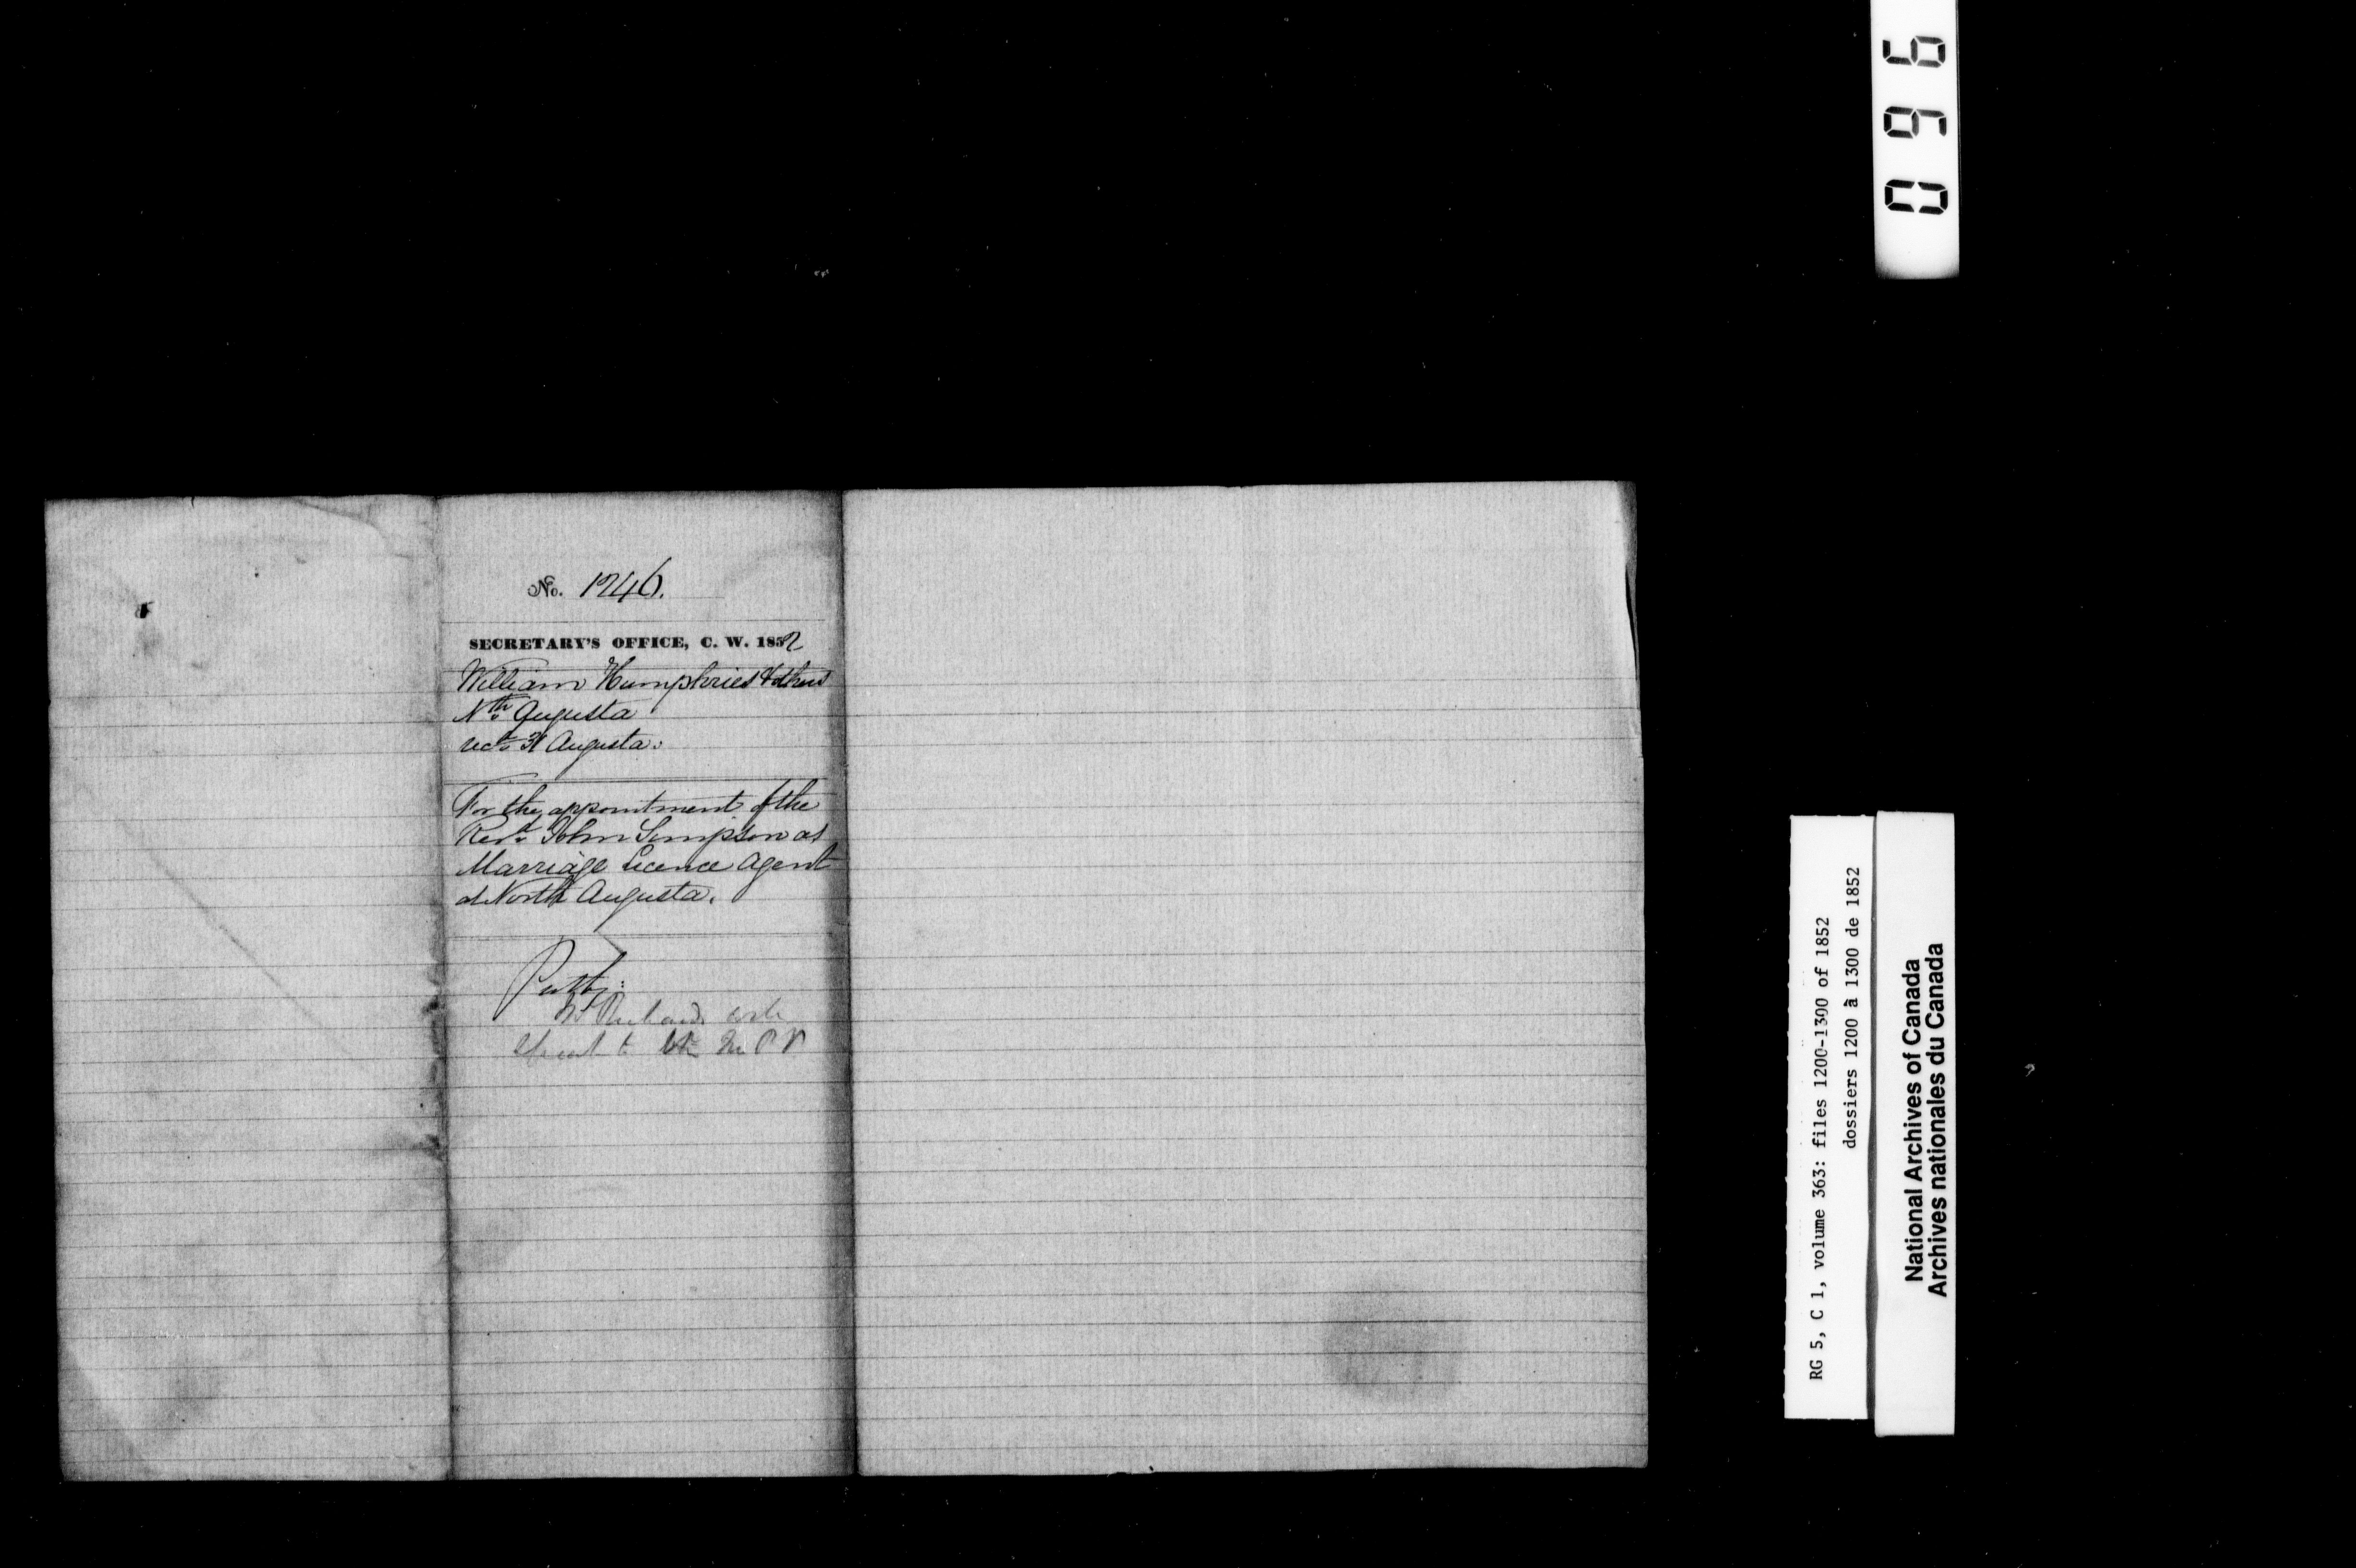 No. 1246.
SECRETARY'S OFFICE, C. W. 1852
William Humphries & others
Nth Augusta
recd 31 Augusta.
For the appointment of the
Revd John Simpson as
Marriage Licence Agent
at North Augusta.
096
RG 5, C 1, volume 363: files 1200-1300 of 1852
dossiers 1200 à 1300 de 1852
National Archives of Canada
Archives nationales du Canada